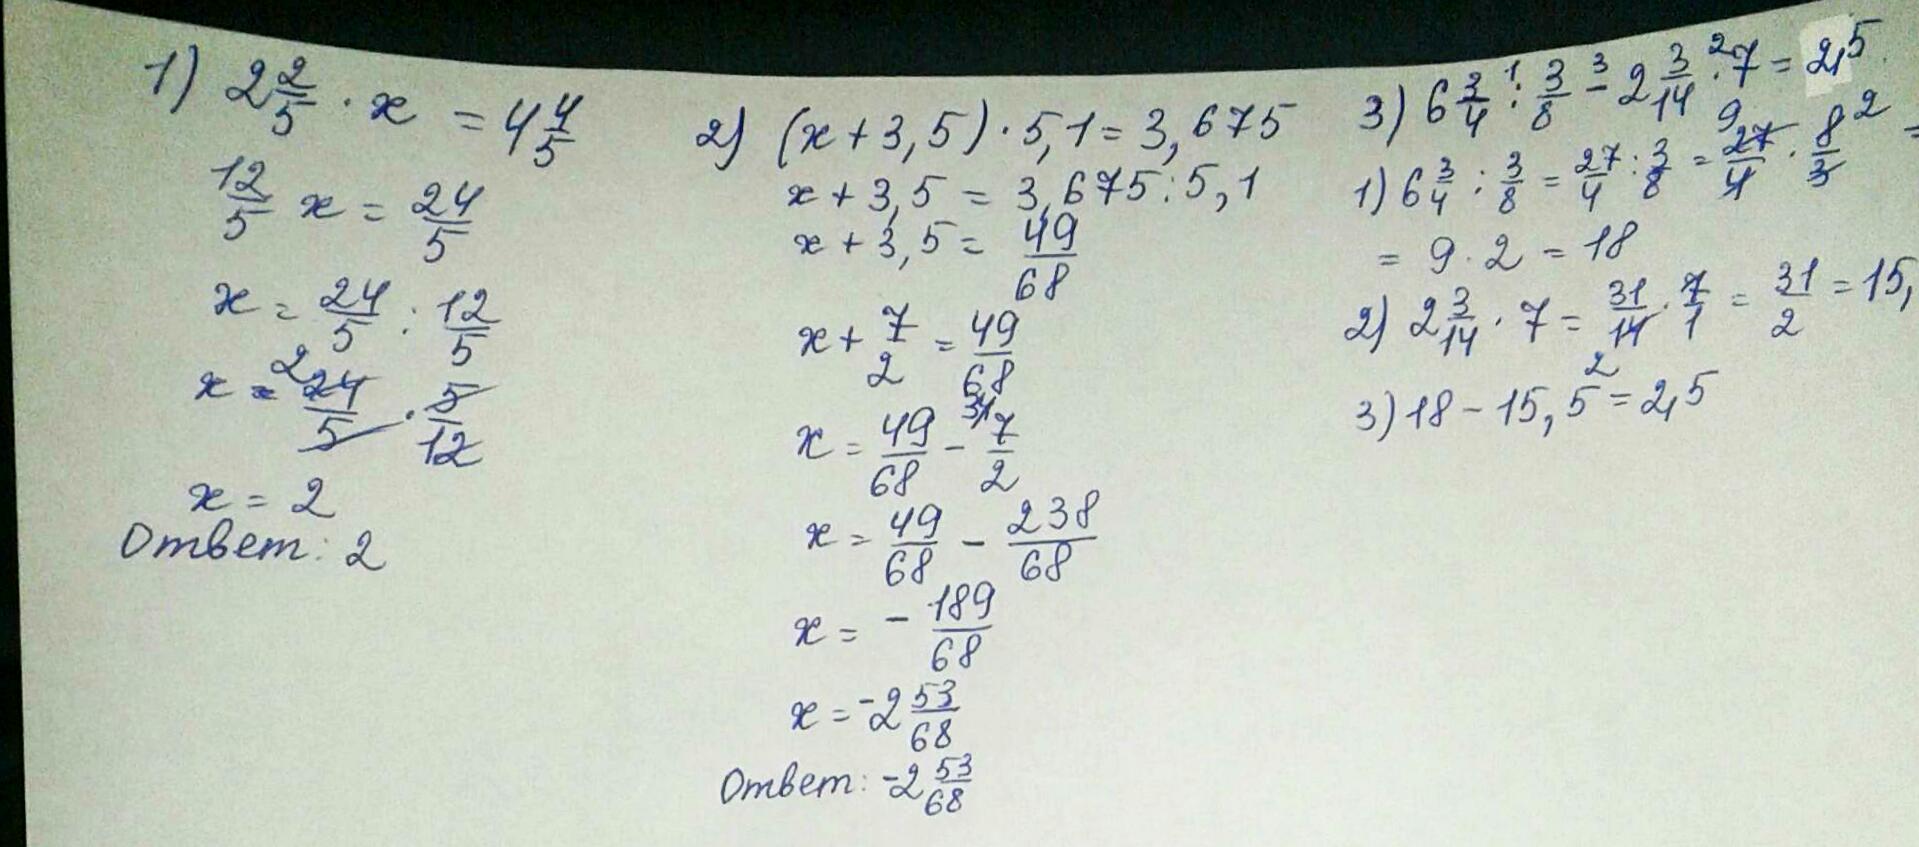 1) 2 2/5 · x = 4 4/5
12/5 x = 24/5
x = 24/5 : 12/5
x = 24/5 · 5/12
2
x = 2
Ответ: 2
2) (x + 3,5) · 5,1 = 3,675
x + 3,5 = 3,675 : 5,1
x + 3,5 = 49/68
x + 7/2 = 49/68
x = 49/68 - 7/2
34
x = 49/68 - 238/68
x = - 189/68
x = -2 53/68
Ответ: -2 53/68
1 3 2
3) 6 3/4 : 3/8 - 2 3/14 · 7 = 2,5
9 2
1) 6 3/4 : 3/8 = 27/4 : 3/8 = 27/4 · 8/3 =
= 9 · 2 = 18
2) 2 3/14 · 7 = 31/14 · 7/1 = 31/2 = 15,
2
3) 18 - 15,5 = 2,5